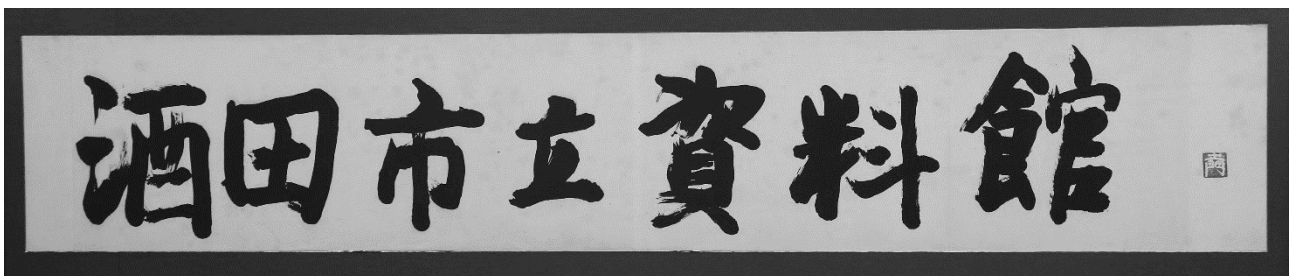 酒田市立資料館